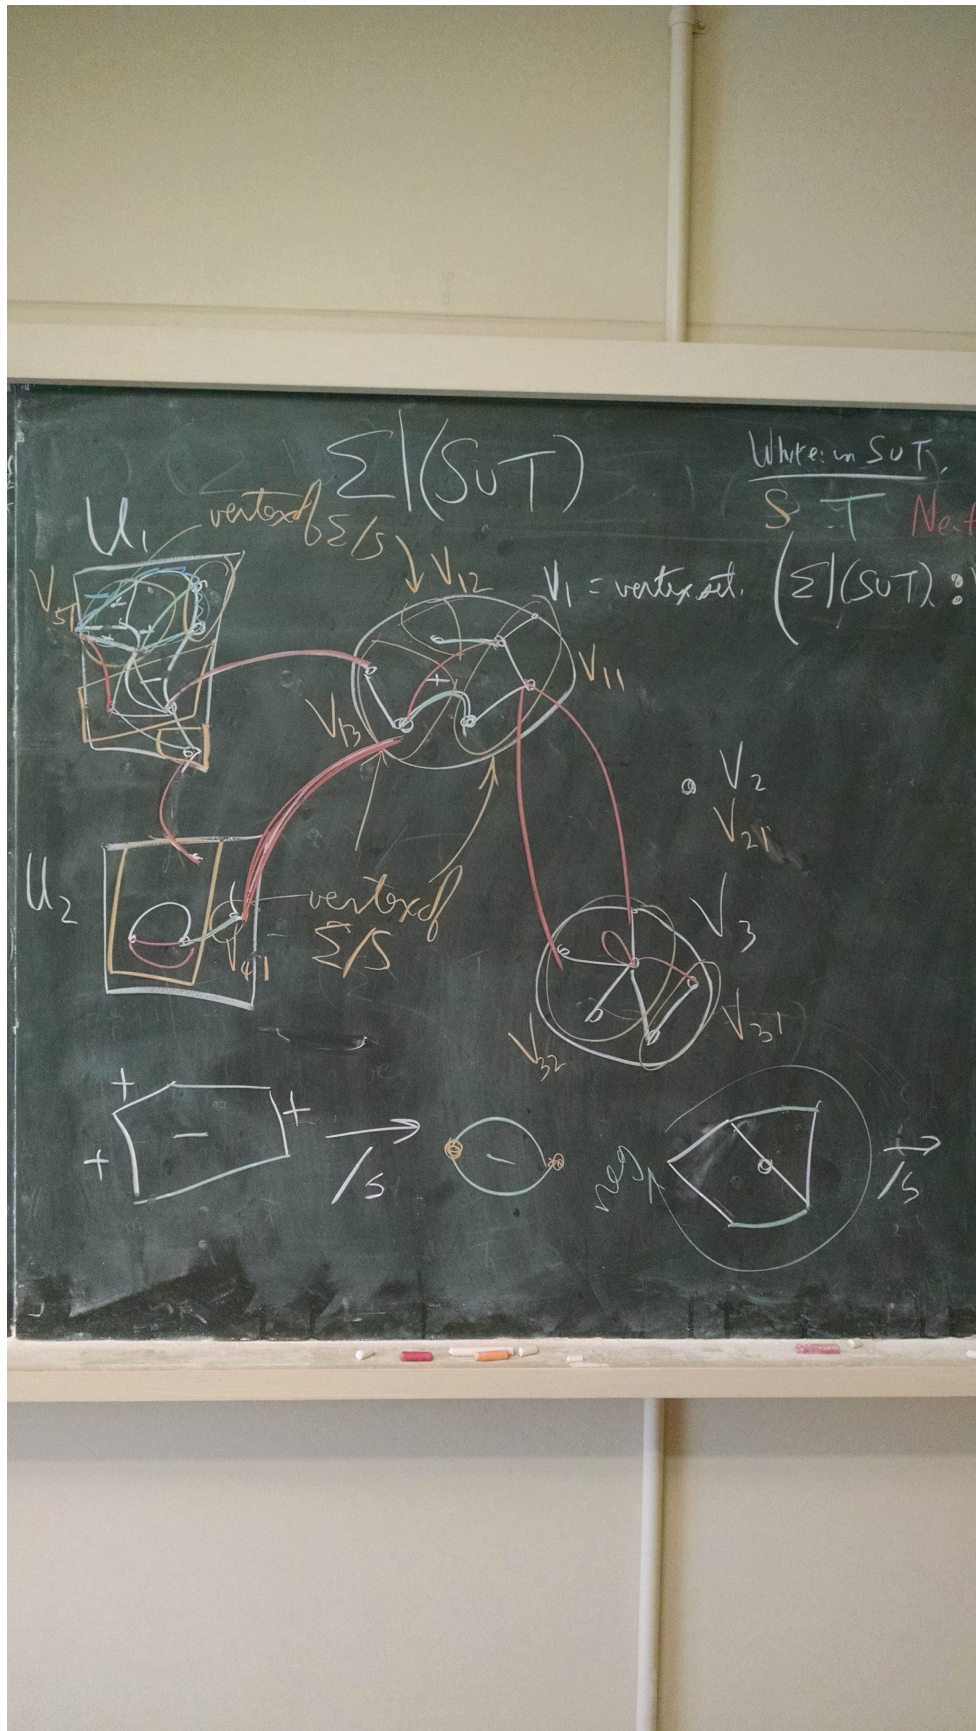 Σ|(S∪T)
White: in S∪T
S T
U₁
vertex of Σ/S
V₁₂
V₁ = vertex set (Σ|(S∪T):
V₅₁
V₁₁
V₁₃
V₂
V₂₁
U₂
vertex of
Σ/S
V₄₁
V₃
V₃₁
V₃₂
+
+
−
+
/S
−
neg
/S